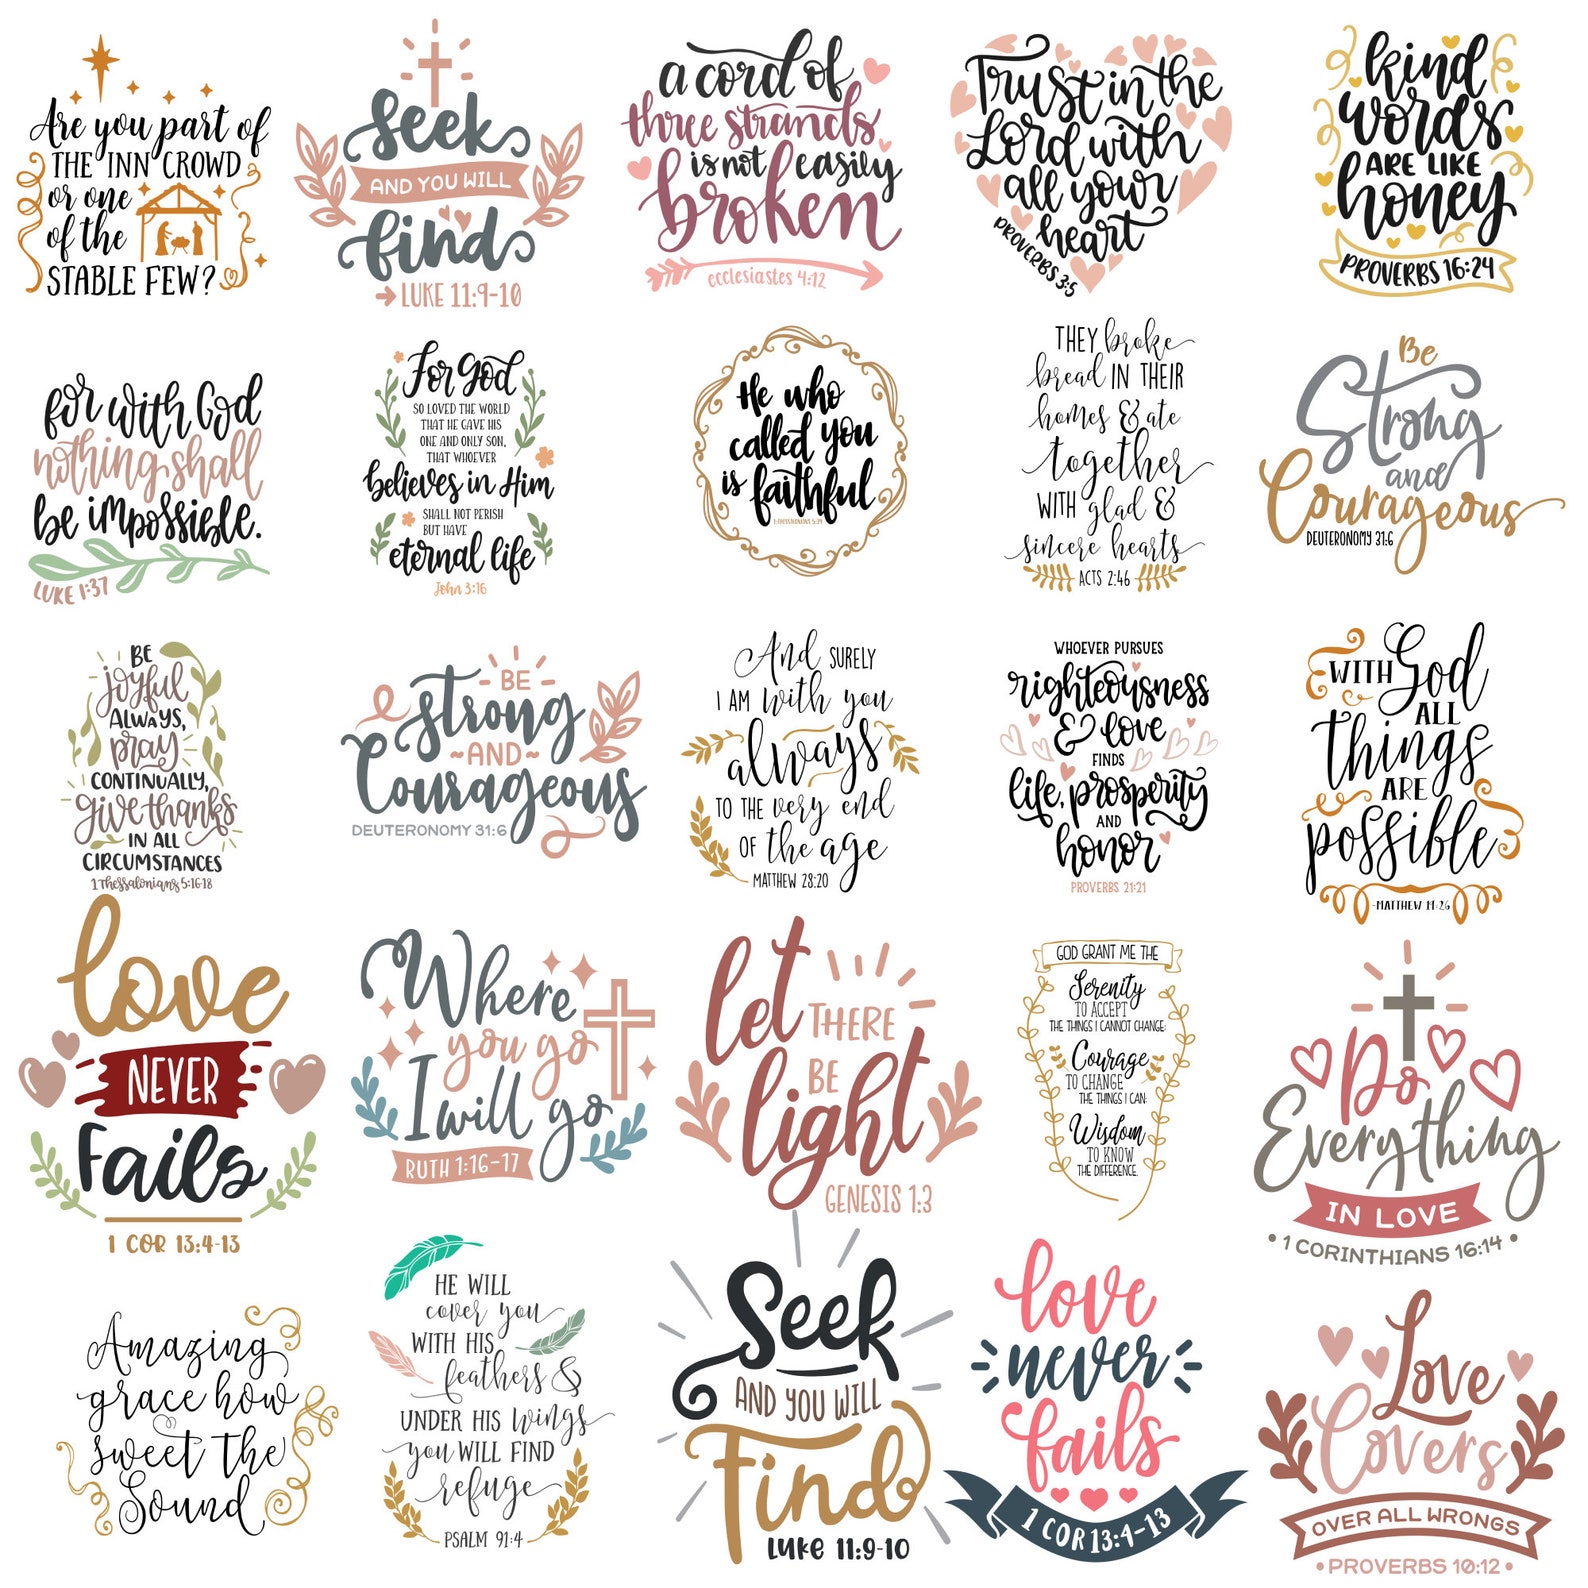 Are you part of
THE INN CROWD
or one
of the
STABLE FEW?
Seek
AND YOU WILL
find
LUKE 11:9-10
a cord of
three strands
is not easily
broken
ecclesiastes 4:12
Trust in the
Lord with
all your
heart
PROVERBS 3:5
kind
words
ARE LIKE
honey
PROVERBS 16:24
for with God
nothing shall
be impossible.
LUKE 1:37
For God
SO LOVED THE WORLD
THAT HE GAVE HIS
ONE AND ONLY SON,
THAT WHOEVER
believes in Him
SHALL NOT PERISH
BUT HAVE
eternal life
John 3:16
He who
called you
is faithful
1 THESSALONIANS 5:24
THEY broke
bread IN THEIR
homes & ate
together
WITH glad &
sincere hearts
ACTS 2:46
Be
Strong
and
Courageous
DEUTERONOMY 31:6
BE
joyful
ALWAYS,
pray
CONTINUALLY,
give thanks
IN ALL
CIRCUMSTANCES
1 Thessalonians 5:16-18
BE
strong
~AND~
Courageous
DEUTERONOMY 31:6
And SURELY
I AM with you
always
TO THE very end
OF the age
MATTHEW 28:20
WHOEVER PURSUES
righteousness
& love
FINDS
life, prosperity
AND
honor
PROVERBS 21:21
WITH God
ALL
things
ARE
possible
-MATTHEW 19:26
love
NEVER
Fails
1 COR 13:4-13
Where
you go
I will go
RUTH 1:16-17
let THERE
BE
light
GENESIS 1:3
GOD GRANT ME THE
Serenity
TO ACCEPT
THE THINGS I CANNOT CHANGE;
Courage
TO CHANGE
THE THINGS I CAN;
Wisdom
TO KNOW
THE DIFFERENCE.
Do
Everything
IN LOVE
• 1 CORINTHIANS 16:14 •
Amazing
grace how
sweet the
Sound
HE WILL
cover you
WITH HIS
feathers &
UNDER HIS wings
you WILL FIND
refuge
PSALM 91:4
Seek
AND YOU WILL
Find
LUKE 11:9-10
love
never
fails
1 COR 13:4-13
Love
Covers
OVER ALL WRONGS
• PROVERBS 10:12 •